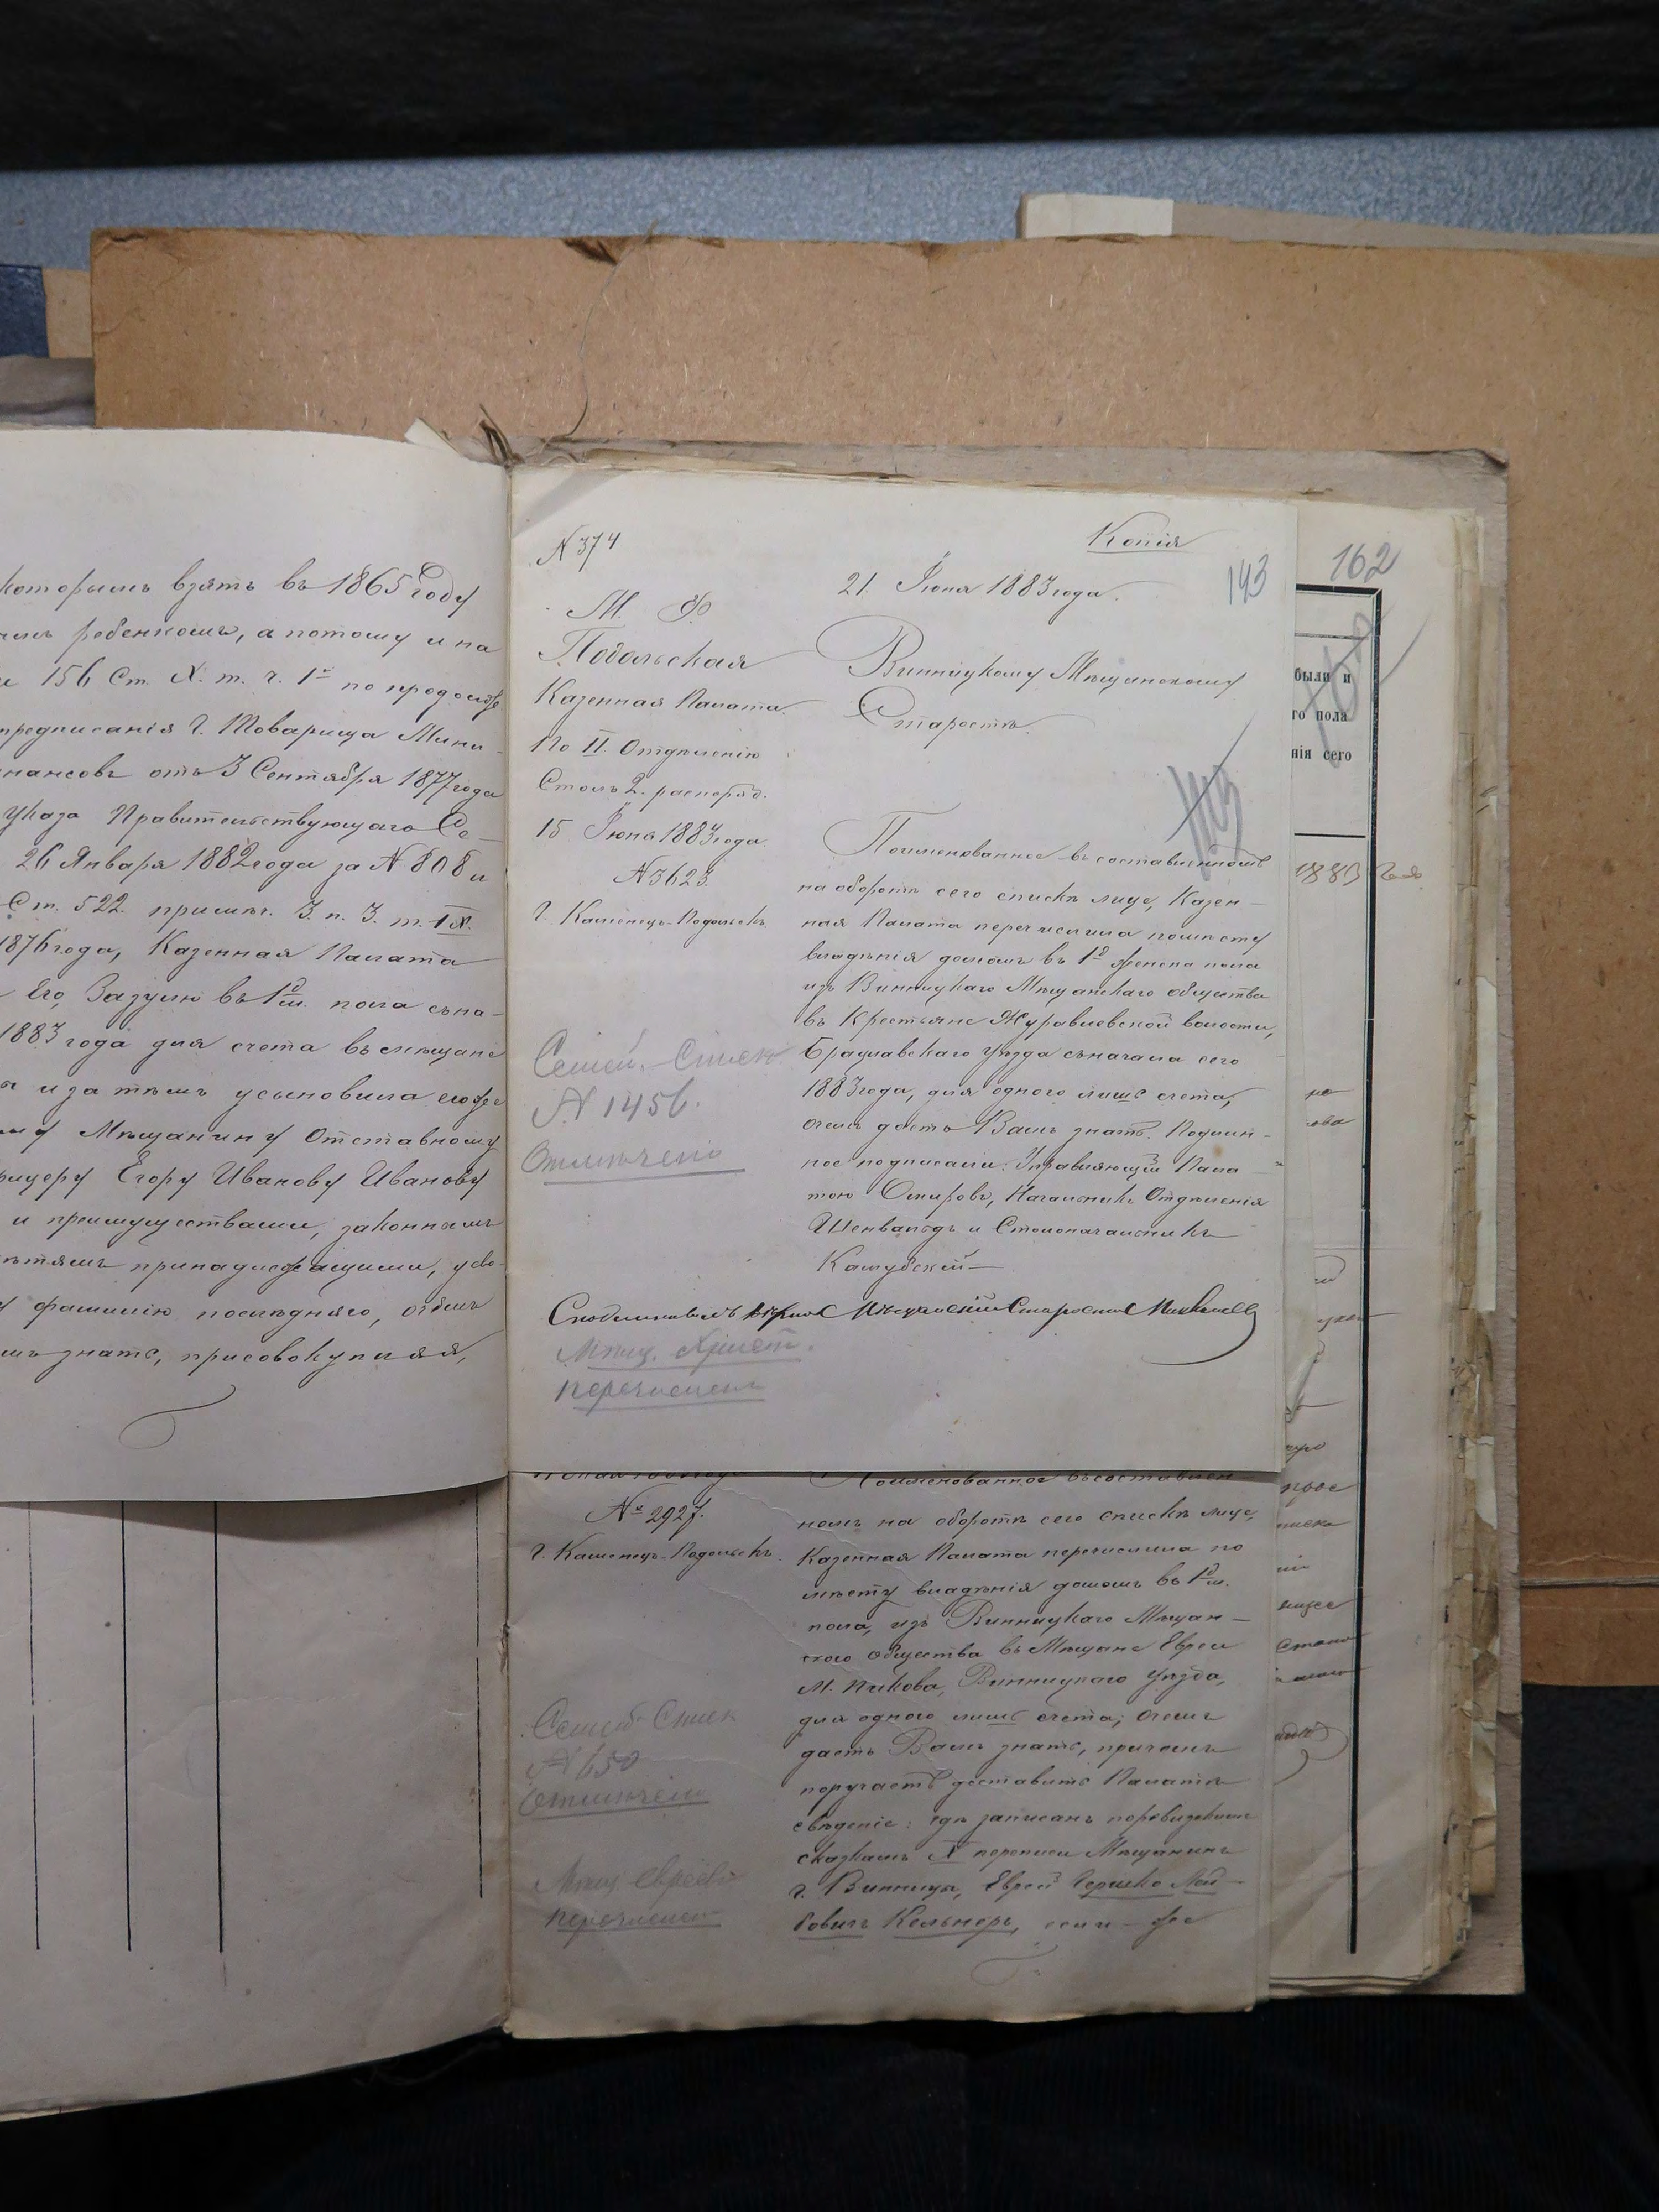 которымъ взятъ въ 1865 году
ребенкомъ, а потому и на
156 Ст. X. т. ч. 1й по продолж.
предписанія Г. Товарища Мини-
нансовъ отъ 3 Сентября 1877 года
Указа Правительствующаго Се-
26 Января 1882 года за № 808 и
Ст. 522. примѣч. 3. п. 3. т. IX.
1876 года, Казенная Палата
Его, Зазулю въ 1д м. пола съна-
1883 года для счета въ мѣщане
и за тѣмъ усыновила его же
Мѣщанину Отставному
офицеру Егору Иванову Иванову
и преимуществами, законнымъ
дѣтямъ принадлежащими, усво-
фамилію послѣдняго, о чемъ
знать, присовокупляя,
№ 374
Копія
143
М. Ф.
Подольская
Казенная Палата.
По II. Отдѣленію
Столъ 2. распоряд.
15 Іюня 1883 года.
№ 3623.
Г. Каменецъ-Подольскъ.
Семей. Списк
№ 1456.
Отмѣчено
21. Іюня 1883 года.
Винницкому Мѣщанскому
Старостѣ.
143
Поименованное въ составленномъ
на оборотѣ сего спискѣ лице, Казен-
ная Палата перечислила по мѣсту
владѣнія домомъ въ 1д женска пола
изъ Винницкаго Мѣщанскаго общества
въ Крестьяне Журавлевской волости,
Брацлавскаго уѣзда съ начала сего
1883 года, для одного лишь счета,
о чемъ дастъ Вамъ знать. Подлин-
ное подписали: Управляющій Пала-
тою Смировъ, Начальникъ Отдѣленія
Шенвальдъ и Столоначальникъ
Кашубскій
Съ подлиннымъ вѣрно Мѣщанскій Староста
Мѣщ. Христ.
перечислен
№ 2927.
Г. Каменецъ-Подольскъ.
Семей. Списк
№ 650
Отмѣчено
Мѣщ. Евреев
перечислен
Поименованное въ составлен
номъ на оборотѣ сего спискѣ лице,
Казенная Палата перечислила по
мѣсту владѣнія домомъ въ 1д м.
пола, изъ Винницкаго Мѣщан-
скаго общества въ Мѣщане Евреи
М. Пикова, Винницкаго уѣзда,
для одного лишь счета; о чемъ
дастъ Вамъ знать, причемъ
поручаетъ доставить Палатѣ
свѣденіе: гдѣ записанъ по ревизскимъ
сказкамъ X переписи Мѣщанинъ
г. Винницы, Еврей Гершко Лей-
бовичъ Кельнеръ, если-же
162
были и
го пола
нія сего
1883 года